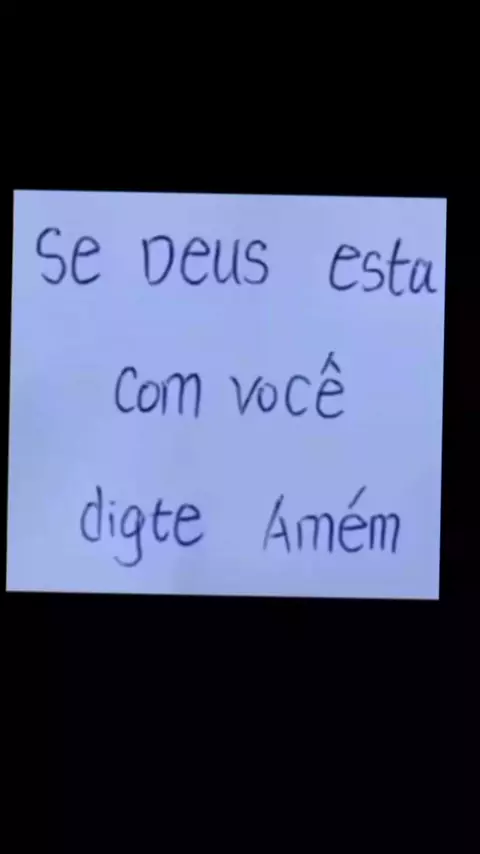 Se Deus esta
com você
digte Amém